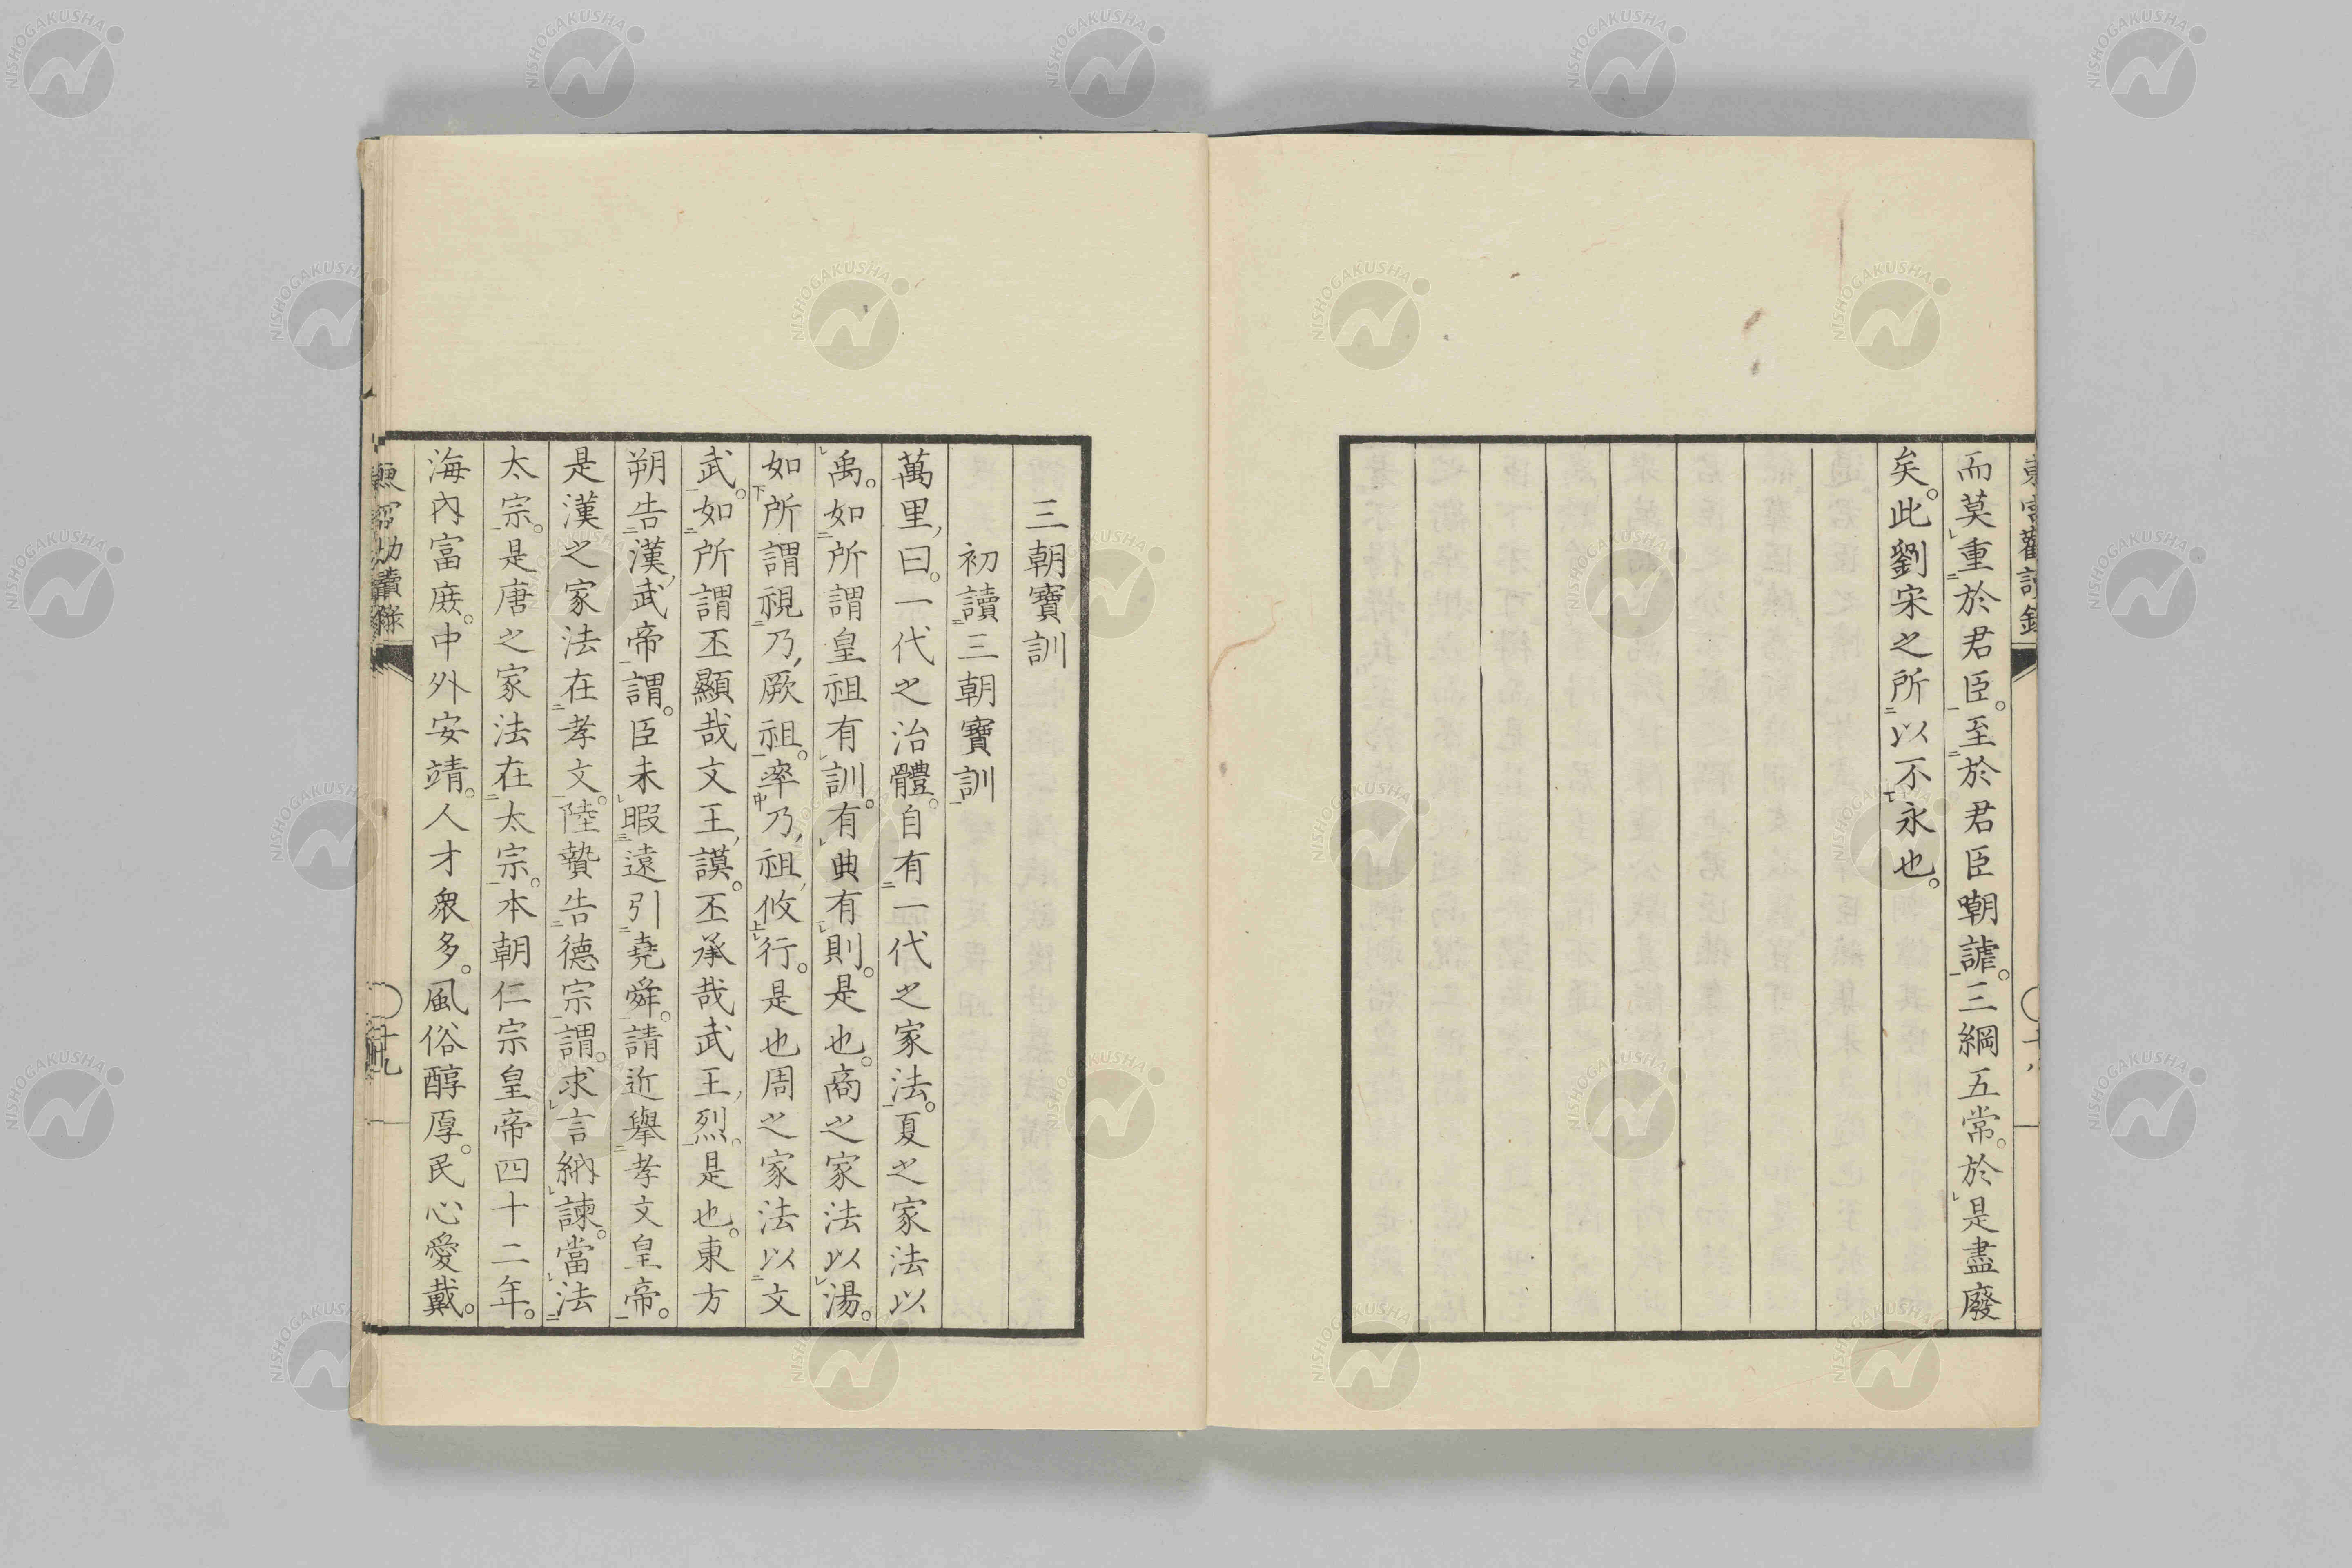 而莫重於君臣。至於君臣嘲謔。三綱五常。於是盡廢
矣。此劉宋之所以不永也。
三朝寶訓
初讀三朝寶訓
萬里曰。一代之治體。自有一代之家法。夏之家法以
禹。如所謂皇祖有訓。有典有則。是也。商之家法以湯。
如所謂視乃厥祖。率乃祖攸行。是也周之家法以文
武。如所謂丕顯哉文王謨。丕承哉武王烈。是也。東方
朔告漢武帝謂。臣未暇遠引堯舜。請近擧孝文皇帝。
是漢之家法在孝文。陸贄告德宗謂。求言納諫。當法
太宗。是唐之家法在太宗。本朝仁宗皇帝四十二年。
海內富庶。中外安靖。人才衆多。風俗醇厚。民心愛戴。
NISHOGAKUSHA